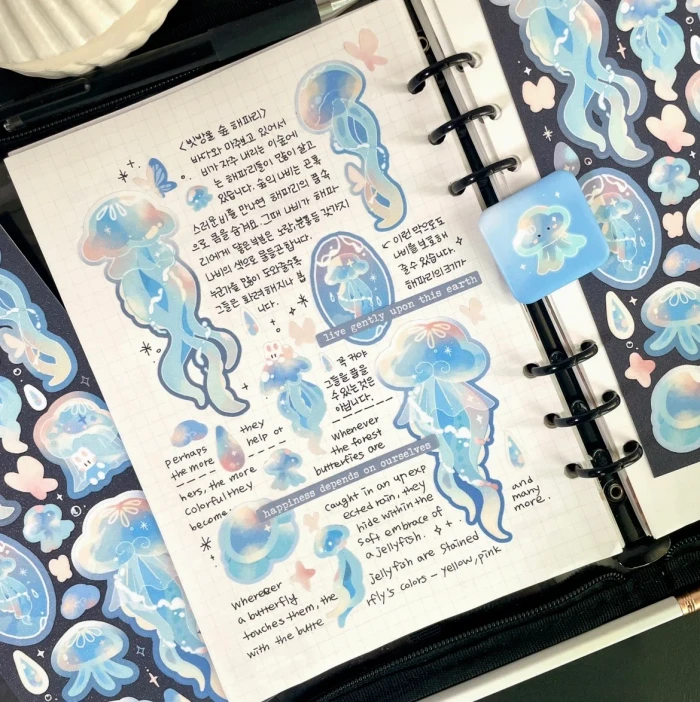 <빗방울 숲 해파리>
바다와 마주보고 있어서
비가 자주 내리는 이 숲에
는 해파리들이 많이 살고
있습니다. 숲의 나비는 곤혹
스러운 비를 만나면 해파리의 품속
으로 몸을 숨겨요. 그때 나비가 해파
리에게 닿은 부분은 노랑, 분홍 등 갖가지
나비의 색으로 물들곤 합니다.
누군가를 많이 도와줄수록
그들은 화려해지나 봅
니다.
← 이런 막으로도
나비를 보호해
줄 수 있습니다.
해파리의 크기가
live gently upon this earth
꼭 커야
그들을 품을
수 있는 것은
아닙니다.
perhaps they
the more help ot
hers, the more
colorful they
become.
whenever
the forest
butterflies are
happiness depends on ourselves
caught in an unexp
ected rain, they
hide within the
soft embrace of
a jellyfish.
and
many
more..
wherever
a butterfly
touches them, the jellyfish are stained
with the butte rfly's colors - yellow, pink